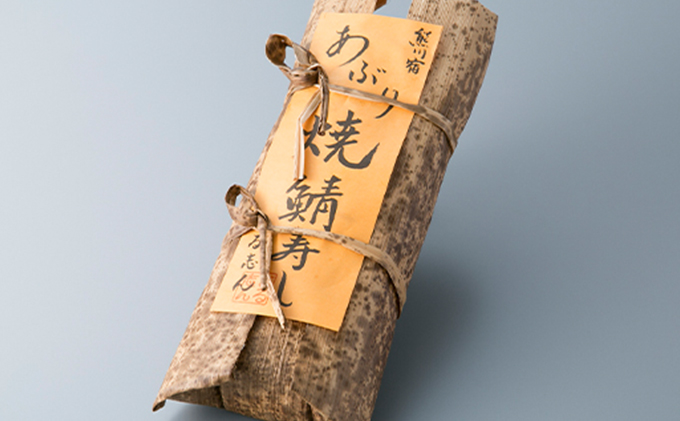 熊川宿
あぶり
焼鯖寿し
志ん